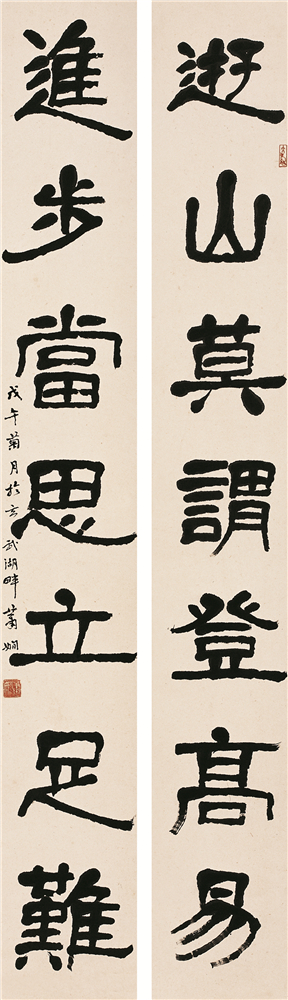 遊山莫謂登高易
進步當思立足難
戊午菊月於玄武湖畔蕭嫻